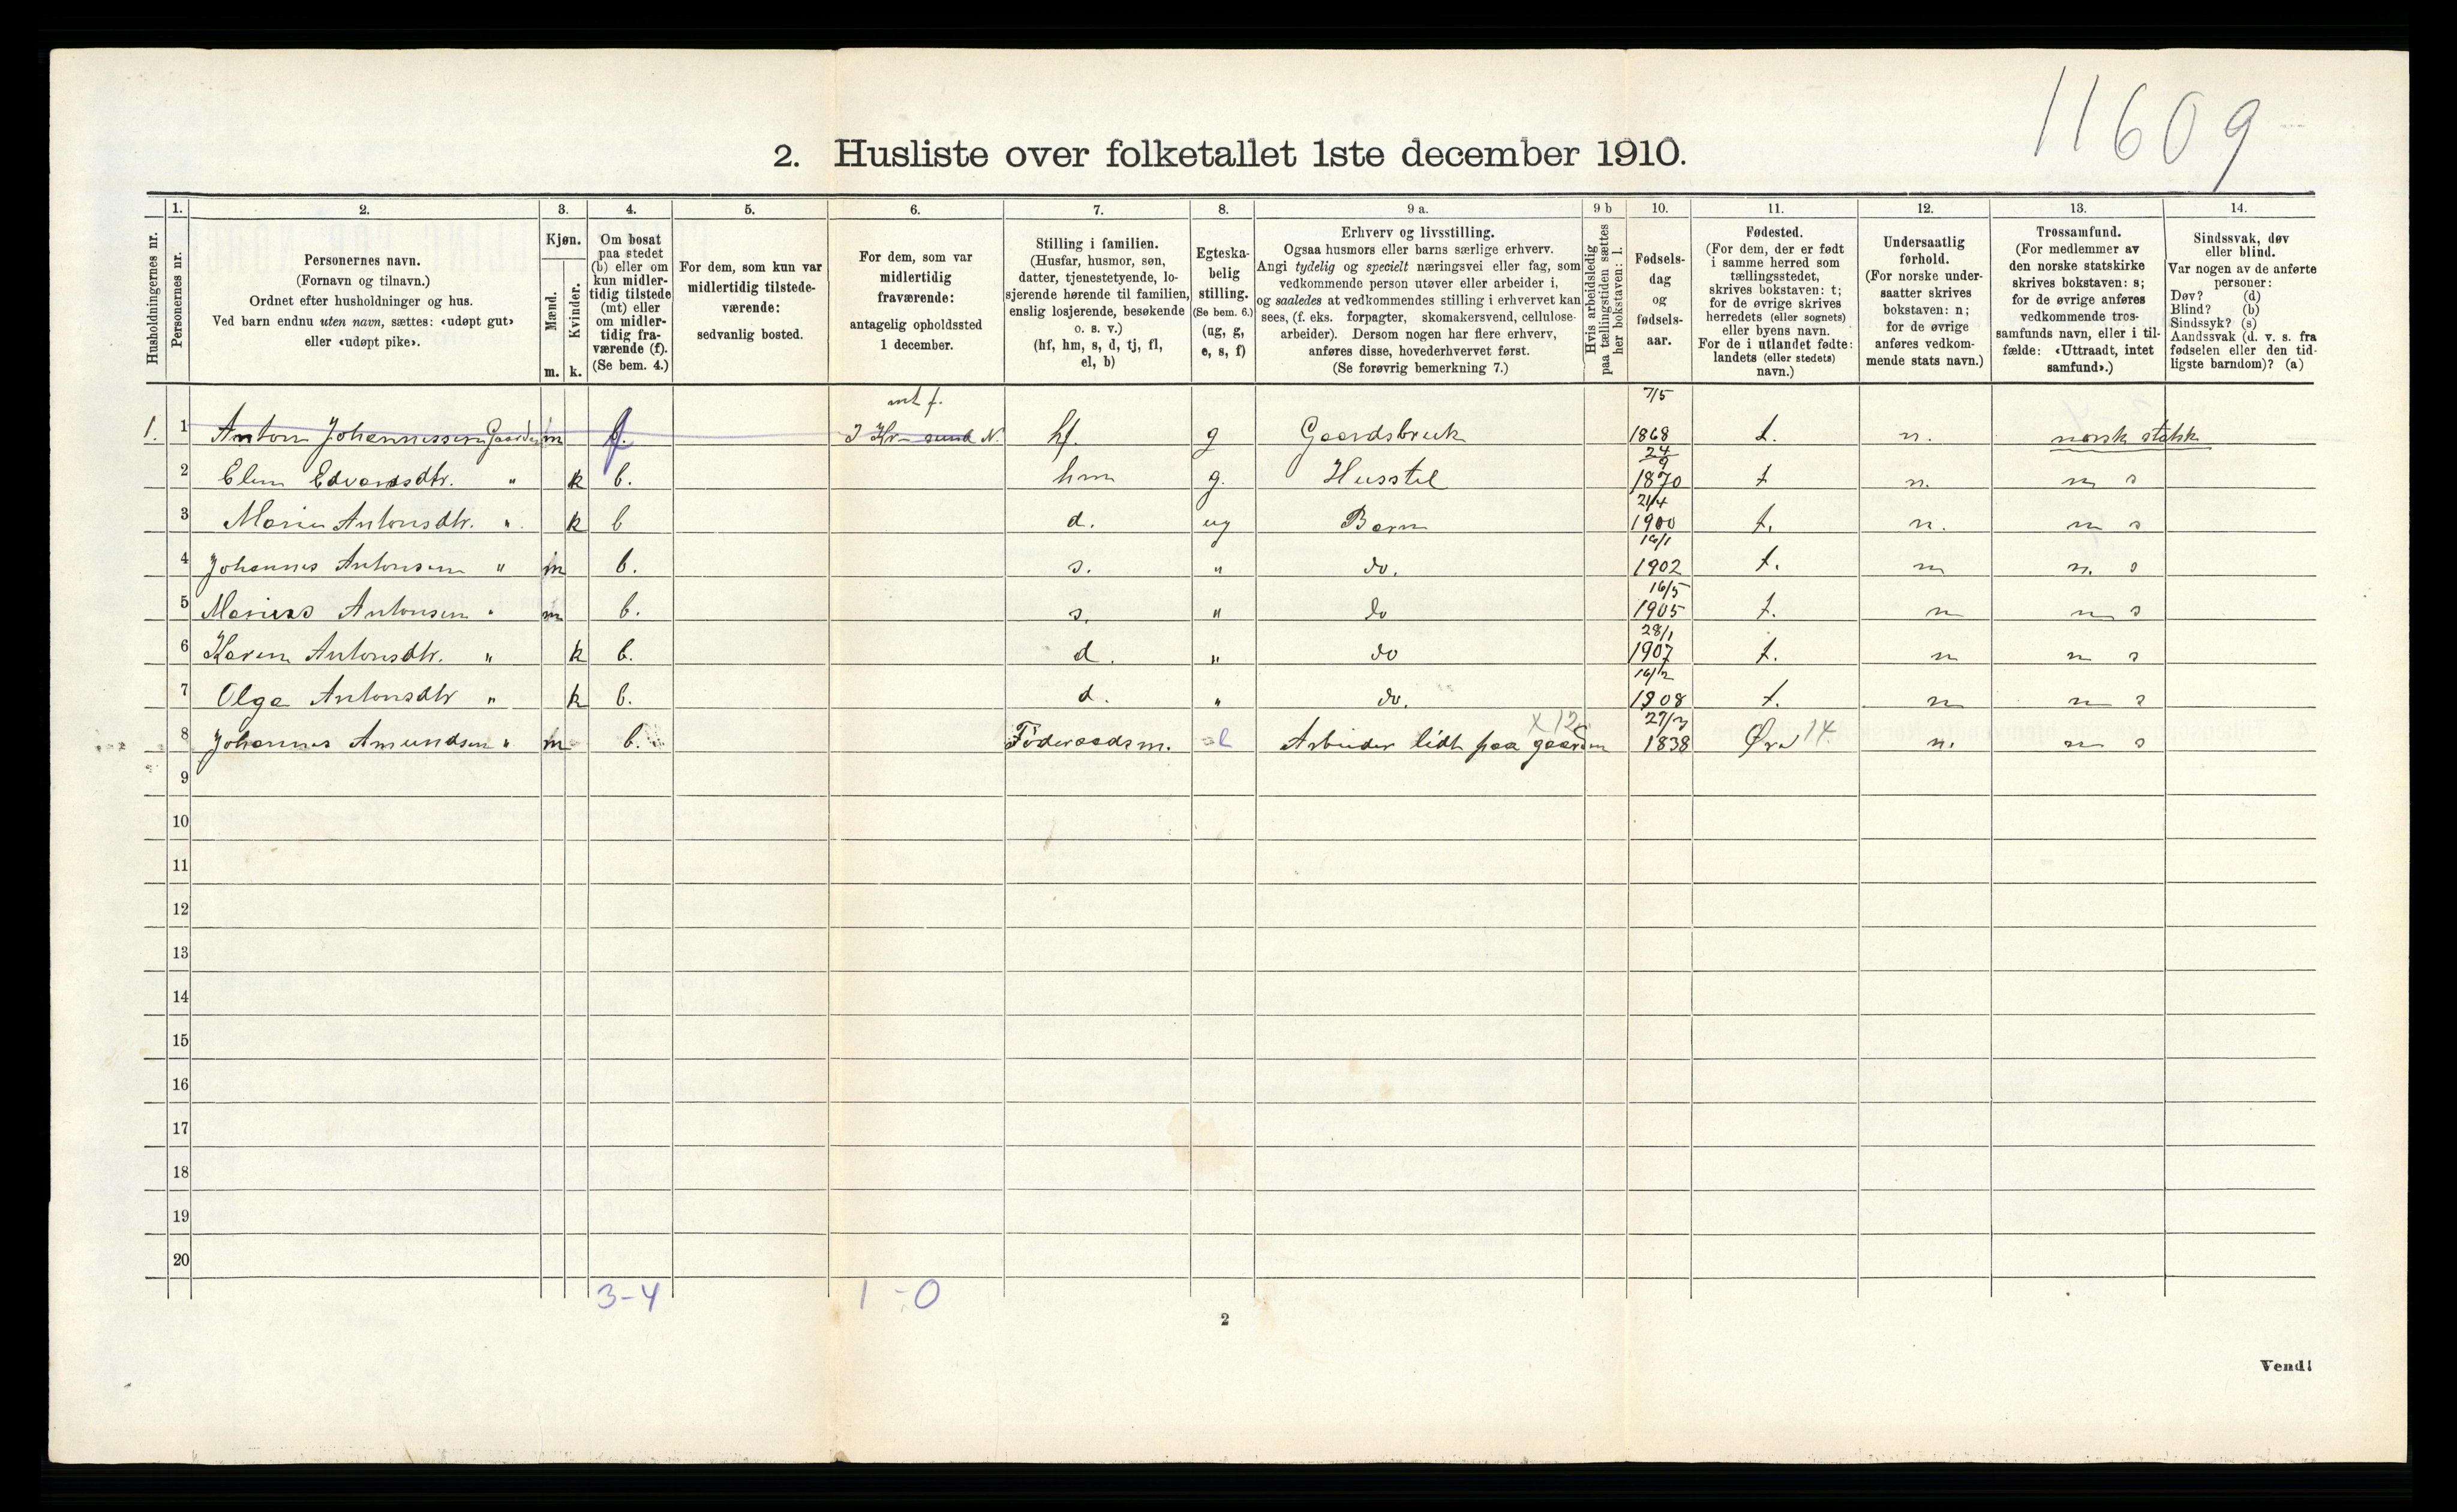 11609
2. Husliste over folketallet 1ste december 1910.
Husholdningernes nr.
1. Personernes nr.
2. Personernes navn.
(Fornavn og tilnavn.)
Ordnet efter husholdninger og hus.
Ved barn endnu uten navn, sættes: «udøpt gut»
eller «udøpt pike».
3. Kjøn.
Mænd. m.
Kvinder. k.
4. Om bosat
paa stedet
(b) eller om
kun midler-
tidig tilstede
(mt) eller
om midler-
tidig fra-
værende (f).
(Se bem. 4.)
5. For dem, som kun var
midlertidig tilstede-
værende:
sedvanlig bosted.
6. For dem, som var
midlertidig
fraværende:
antagelig opholdssted
1 december.
7. Stilling i familien.
(Husfar, husmor, søn,
datter, tjenestetyende, lo-
sjerende hørende til familien,
enslig losjerende, besøkende
o. s. v.)
(hf, hm, s, d, tj, fl,
el, b)
8. Egteska-
belig
stilling.
(Se bem. 6.)
(ug, g,
e, s, f)
9 a. Erhverv og livsstilling.
Ogsaa husmors eller barns særlige erhverv.
Angi tydelig og specielt næringsvei eller fag, som
vedkommende person utøver eller arbeider i,
og saaledes at vedkommendes stilling i erhvervet kan
sees, (f. eks. forpagter, skomakersvend, cellulose-
arbeider). Dersom nogen har flere erhverv,
anføres disse, hovederhvervet først.
(Se forøvrig bemerkning 7.)
9 b Hvis arbeidsledig
paa tællingstiden sættes
her bokstaven: l.
10. Fødsels-
dag
og
fødsels-
aar.
11. Fødested.
(For dem, der er født
i samme herred som
tællingsstedet,
skrives bokstaven: t;
for de øvrige skrives
herredets (eller sognets)
eller byens navn.
For de i utlandet fødte:
landets (eller stedets)
navn.)
12. Undersaatlig
forhold.
(For norske under-
saatter skrives
bokstaven: n;
for de øvrige
anføres vedkom-
mende stats navn.)
13. Trossamfund.
(For medlemmer av
den norske statskirke
skrives bokstaven: s;
for de øvrige anføres
vedkommende tros-
samfunds navn, eller i til-
fælde: «Uttraadt, intet
samfund».)
14. Sindssvak, døv
eller blind.
Var nogen av de anførte
personer:
Døv? (d)
Blind? (b)
Sindssyk? (s)
Aandssvak (d. v. s. fra
fødselen eller den tid-
ligste barndom)? (a)
mt f. 7/5
1. 1 Anton Johannessen Gaarden m f. I Kr-sund N. hf. g Gaardsbruk 1868 t. n. norsk statsk
24/9
2 Elen Edvardsdtr. " k b. hm g. Husstel 1870 t n. n s
21/4
3 Marie Antonsdtr. " k b d. ug Barn 1900 t. n. n s
4 Johannes Antonsen " m b. s. " do. 1902 t. n n. s
16/5
5 Marius Antonsen " m b. s. " do 1905 t. n n s
28/1
6 Karen Antonsdtr. " k b. d. " do 1907 t. n n s
7 Olga Antonsdtr " k b. d. " do. 1908 t. n n s
8 Johannes Amundsen " m b. Föderaadsm. Arbeider lidt paa gaarden 1838 Øre 14. n. n s
9
10
11
12
13
14
15
16
17
18
19
20
3-4 1-0
2
Vend!